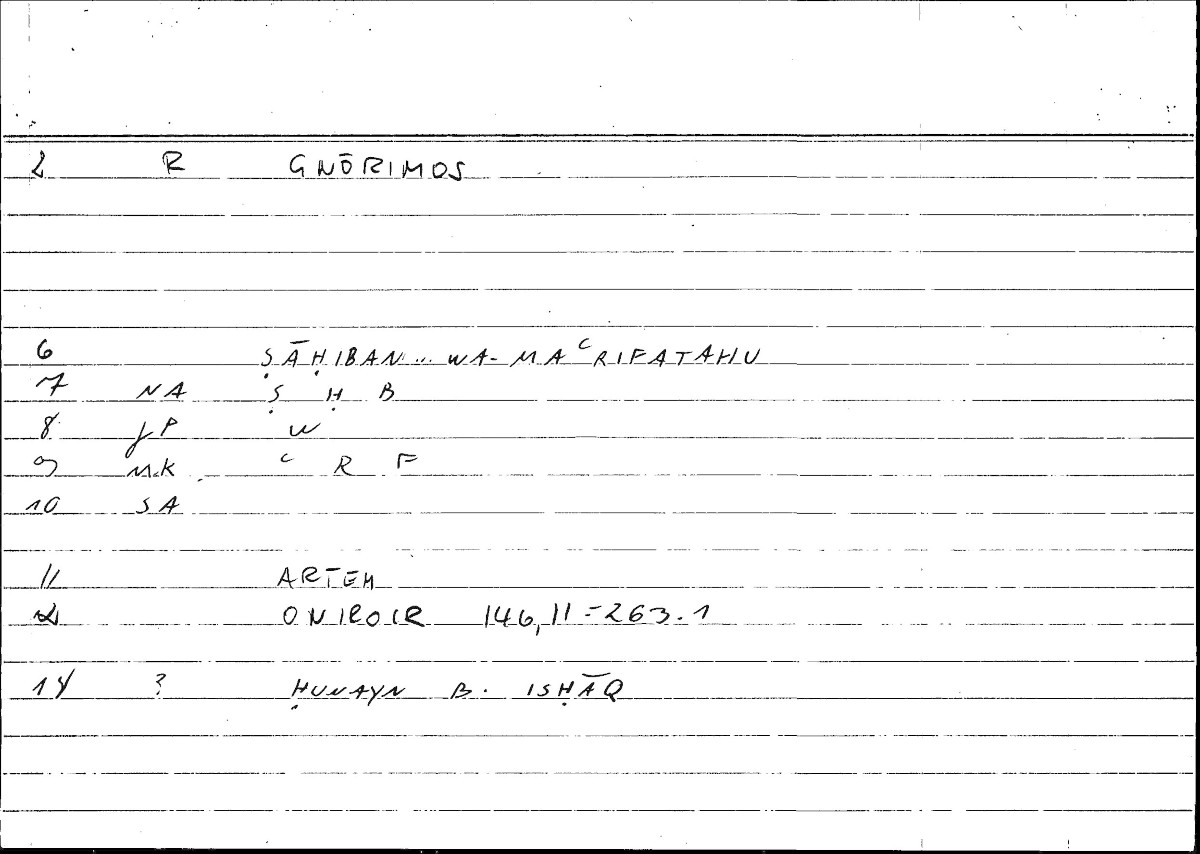 2 R GNŌRIMOS
6 ṢĀḤIBAN... WA-MAʿRIFATAHU
7 NA Ṣ Ḥ B
8 JP W
9 MK ʿ R F
10 SA
11 ARTEM
2 ONIROCR 146,11=263.1
14 ? ḤUNAYN B. ISḤĀQ